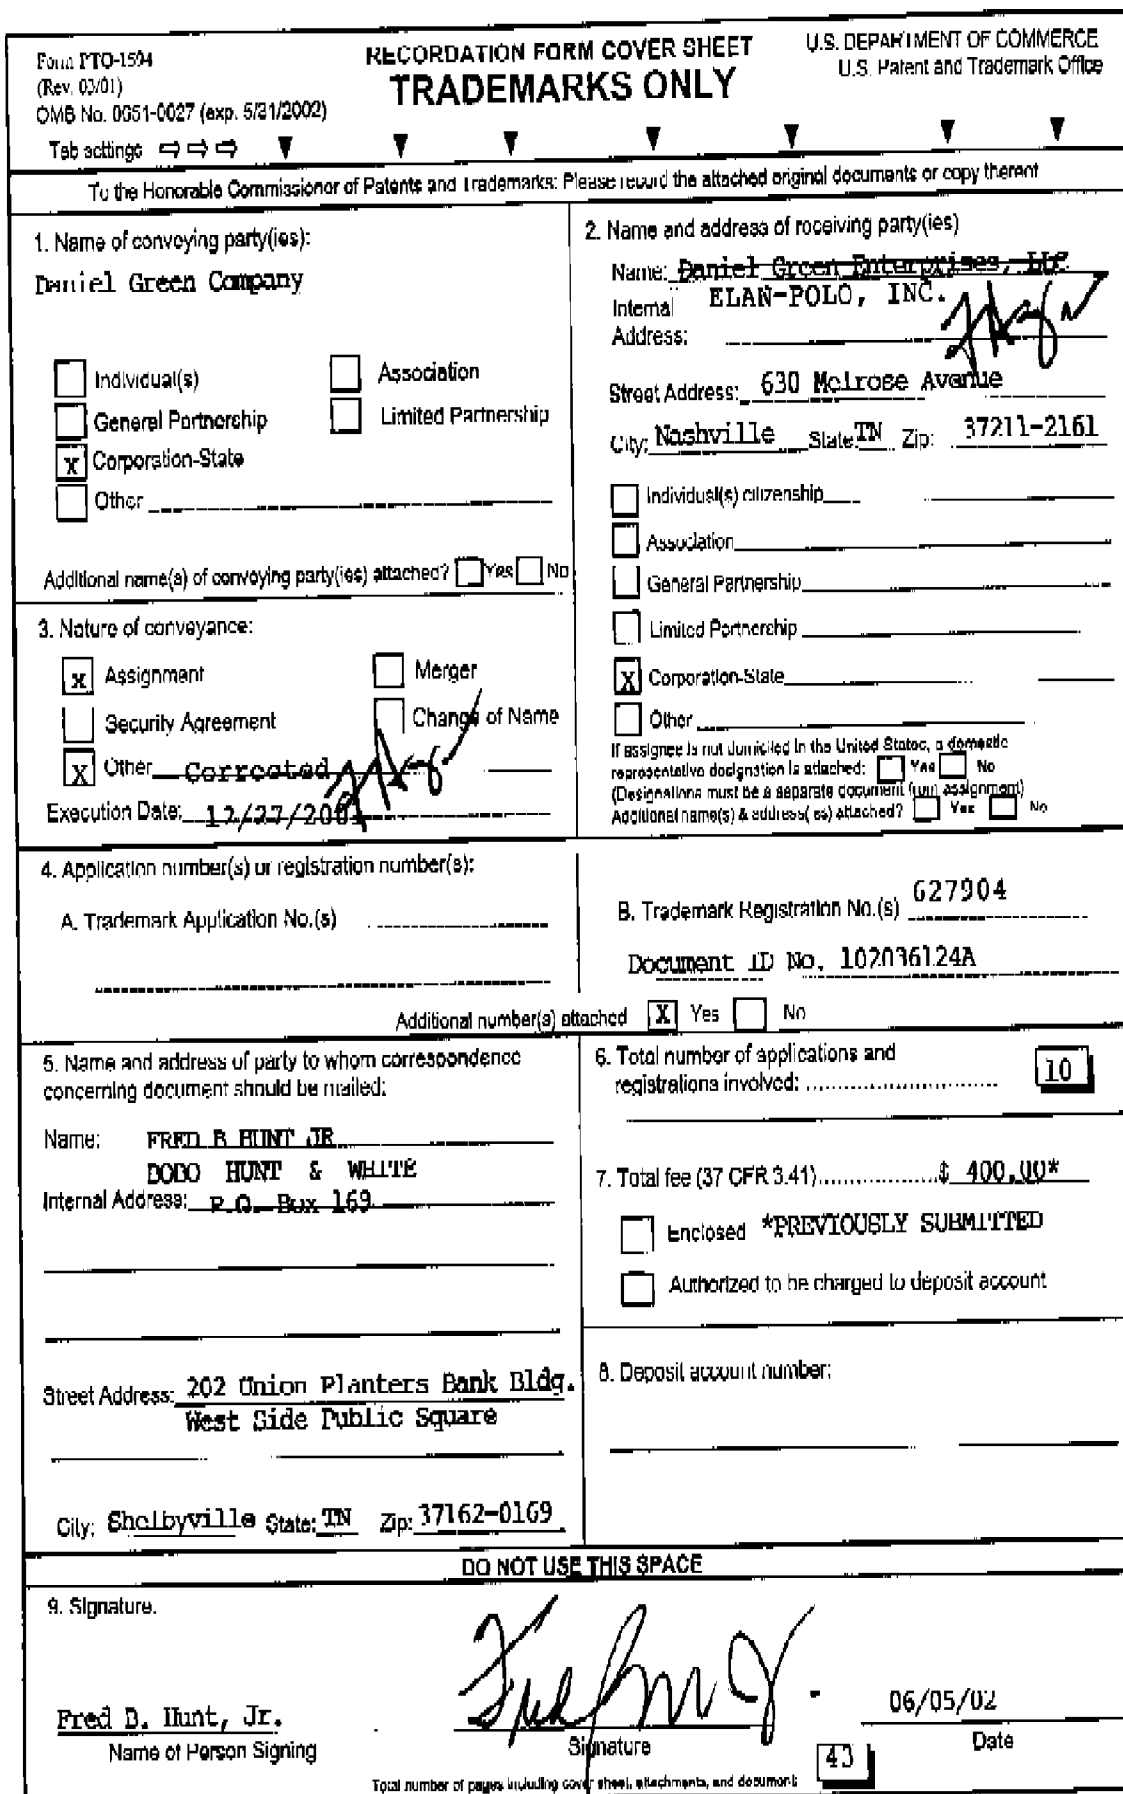 Form PTO-1594
(Rev. 03/01)
OMB No. 0651-0027 (exp. 5/31/2002)
RECORDATION FORM COVER SHEET
TRADEMARKS ONLY
U.S. DEPARTMENT OF COMMERCE
U.S. Patent and Trademark Office
Tab settings
To the Honorable Commissioner of Patents and Trademarks: Please record the attached original documents or copy thereof
1. Name of conveying party(ies):
Daniel Green Company
Individual(s)
Association
General Partnership
Limited Partnership
x Corporation-State
Other
Additional name(s) of conveying party(ies) attached? Yes No
2. Name and address of receiving party(ies)
Name: Daniel Green Enterprises, LLC
Internal ELAN-POLO, INC.
Address:
Street Address: 630 Melrose Avenue
City: Nashville State: TN Zip: 37211-2161
Individual(s) citizenship
Association
General Partnership
Limited Partnership
X Corporation-State
Other
If assignee is not domiciled in the United States, a domestic
representative designation is attached: Yes No
(Designations must be a separate document from assignment)
Additional name(s) & address(es) attached? Yes No
3. Nature of conveyance:
x Assignment
Merger
Security Agreement
Change of Name
X Other Corrected
Execution Date: 12/27/2001
4. Application number(s) or registration number(s):
A. Trademark Application No.(s)
B. Trademark Registration No.(s) 627904
Document ID No. 102036124A
Additional number(s) attached X Yes No
5. Name and address of party to whom correspondence
concerning document should be mailed:
Name: FRED B HUNT JR
BOBO HUNT & WHITE
Internal Address: P.O. Box 169
Street Address: 202 Union Planters Bank Bldg.
West Side Public Square
City: Shelbyville State: TN Zip: 37162-0169
6. Total number of applications and
registrations involved: 10
7. Total fee (37 CFR 3.41) $ 400.00*
Enclosed *PREVIOUSLY SUBMITTED
Authorized to be charged to deposit account
8. Deposit account number:
DO NOT USE THIS SPACE
9. Signature.
Fred B. Hunt, Jr.
Name of Person Signing
Signature
06/05/02
Date
Total number of pages including cover sheet, attachments, and document: 43